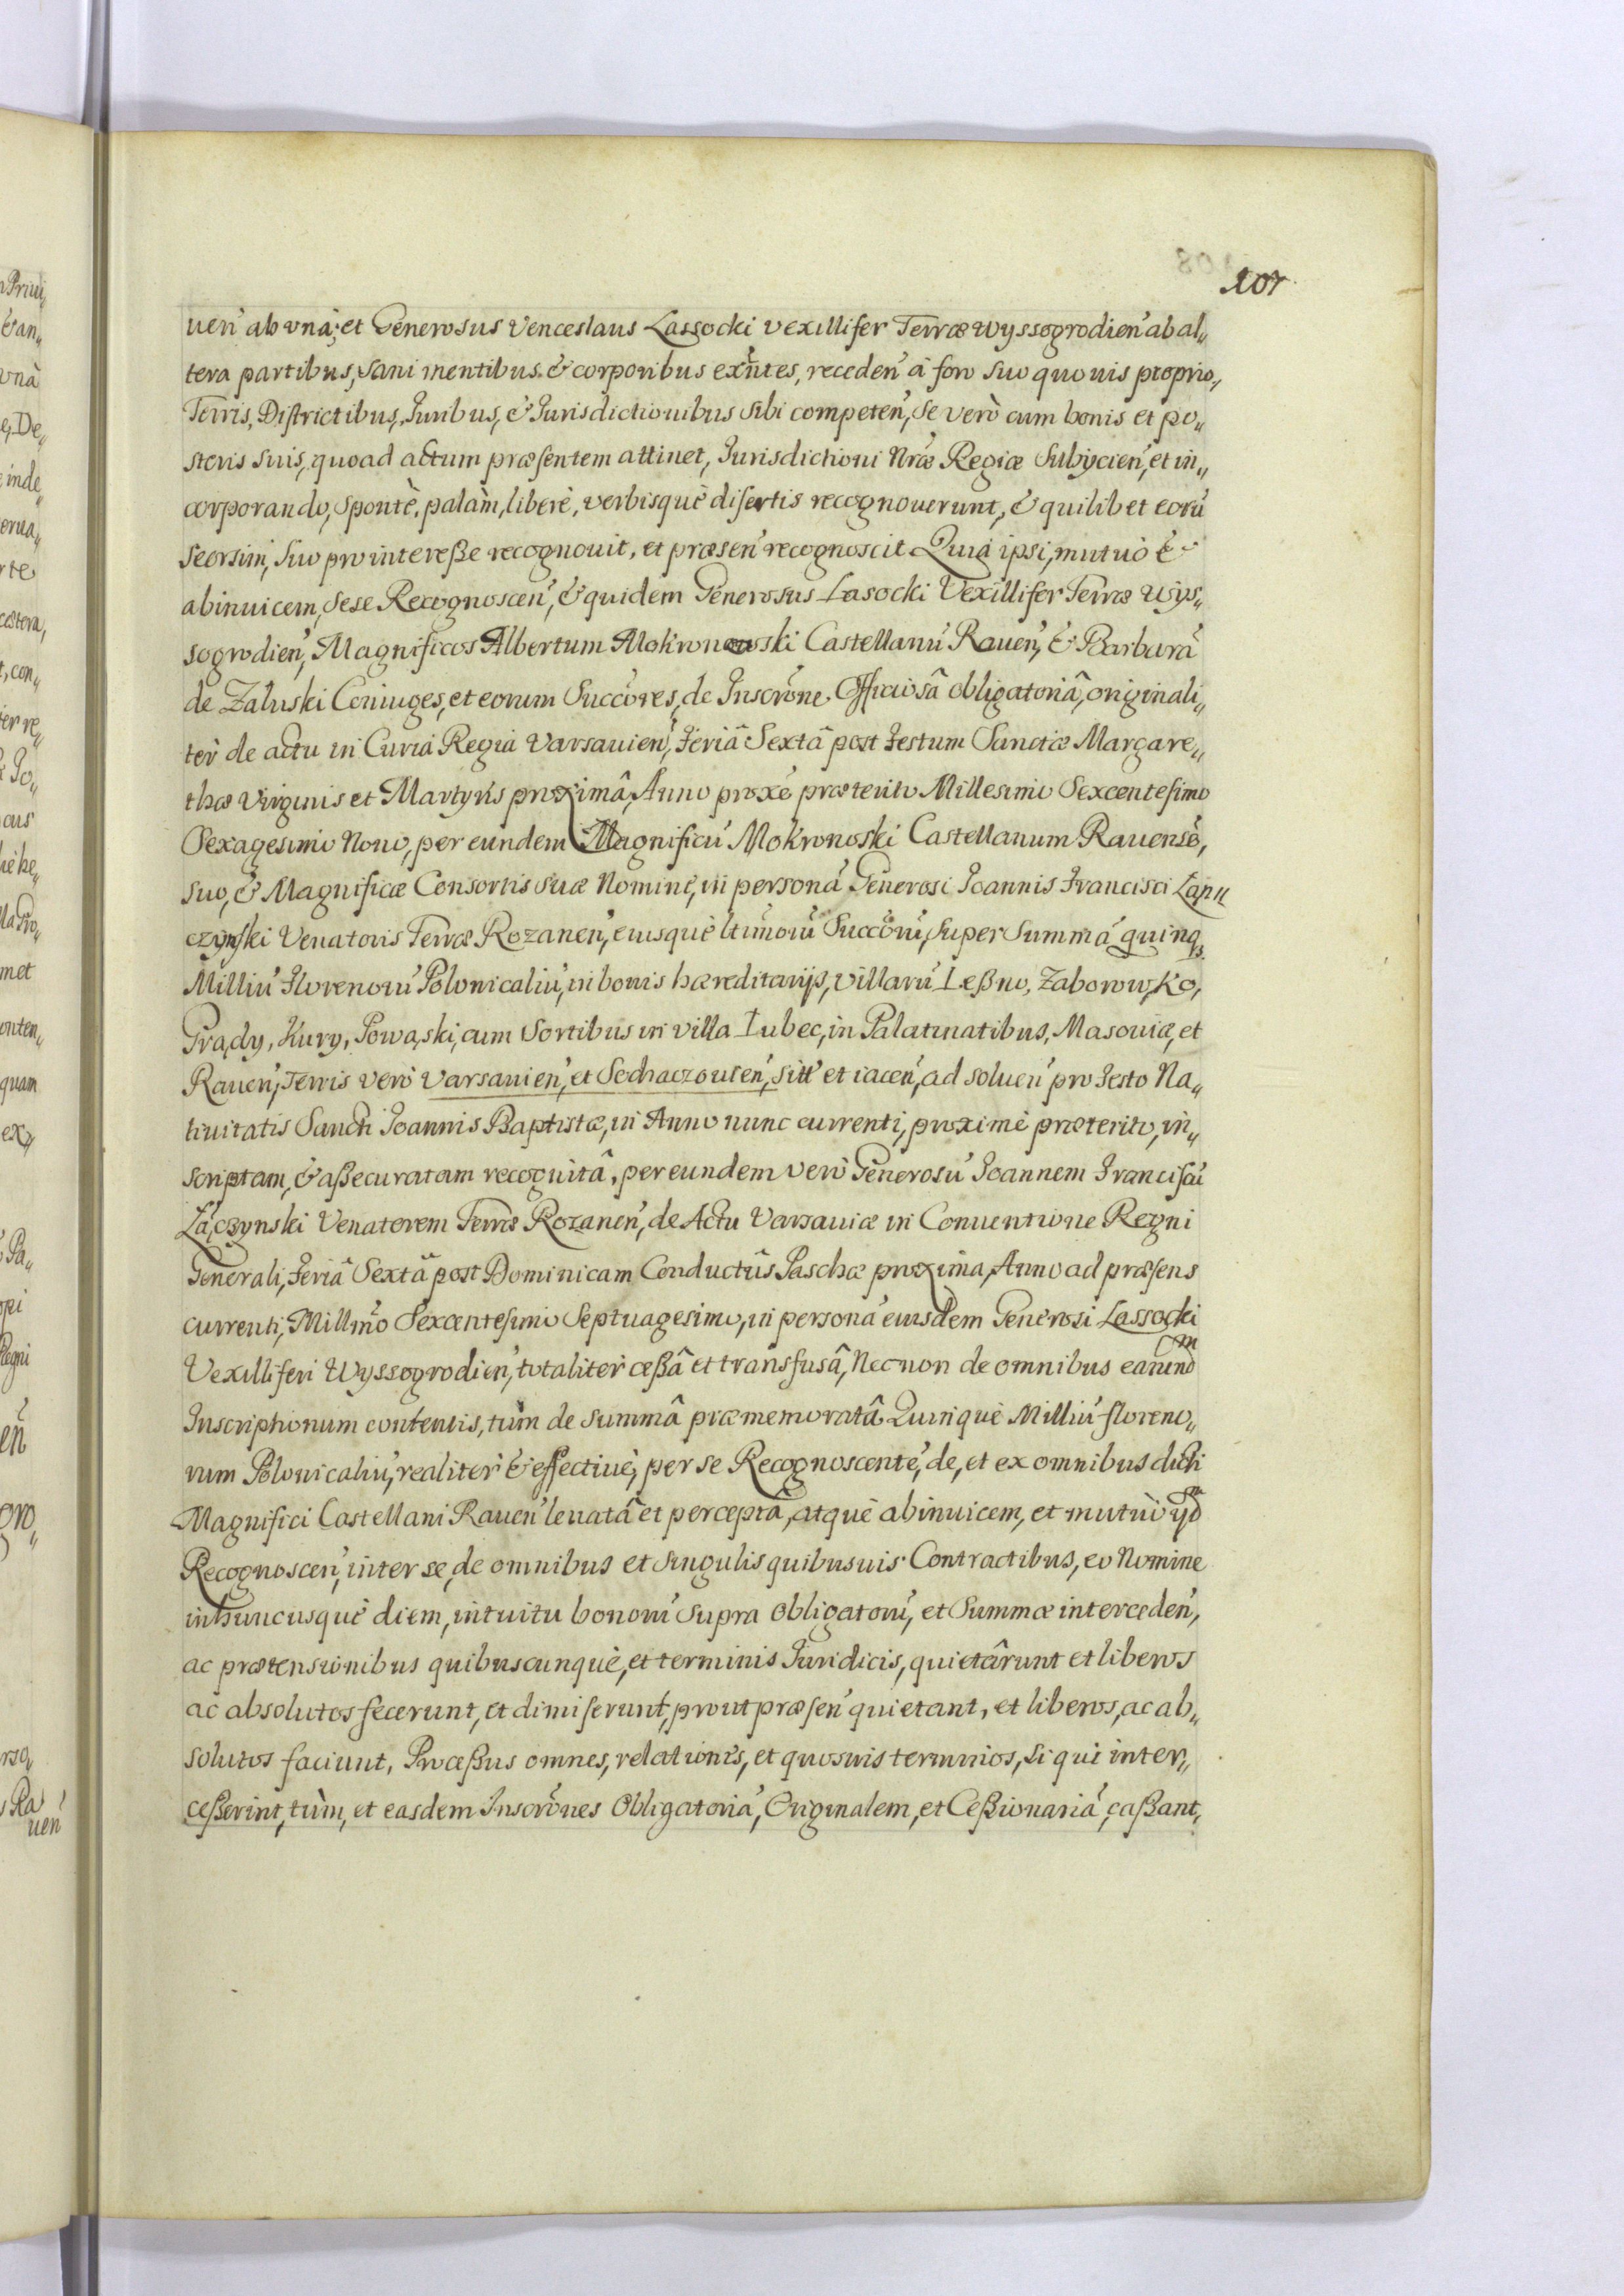 107
uen̄ ab vnâ; et Generosus Venceslaus Lassocki vexillifer Terræ Wyssogrodien̄ ab al„
tera partibus, sani mentibus & corporibus exn̄tes, receden̄ à foro suo quouis proprio,
Terris, Districtibus, Iuribus, & Iurisdictionibus sibi competen̄, Se verò cum bonis et po„
steris suis, quoad actum præsentem attinet, Iurisdictioni Nræ Regiæ Subÿcien̄, et in„
corporando, Spontè, palàm, liberè, verbisquè disertis recognouerunt, & quilibet eorū
seorsim, suo pro intereße recognouit, et præsen̄ recognoscit Quià ipsi, mutuò &
abinuicem, sese Recognoscen̄, & quidem Generosus Lasocki Vexillifer Terræ Wys„
sogrodien̄, Magnificos Albertum Mokronowski Castellanū Rauen̄, & Barbarā
de Zaluski Coniuges, et eorum Succōres, de Inscrōne Officiosâ obligatoriâ, originali„
ter de actu in Curiâ Regiâ Varsauien̄, Feriâ Sextâ post Festum Sanctæ Margare„
thæ Virginis et Martyris proximâ, Anno proxè præterito Millesimo Sexcentesimo
Sexagesimo Nono, per eundem Magnificū Mokronoski Castellanum Rauensē,
suo, & Magnificæ Consortis suæ Nominè, in personā Generosi Joannis Francisci Łapu
czynski Venatoris Terræ Rozanen̄, eiusquè ltimorū Succōrū, Super Summâ quinq3
Milliū Florenorū Polonicaliū, in bonis hæreditarÿs, Villarū Leßno, Zaborowko,
Grądy, Kury, Powąski, cum Sortibus in villa Lubec, in Palatinatibus, Masouiæ, et
Rauen̄, Terris verò Varsauien̄, et Sochaczouien̄, sitt̄ et iacen̄, ad soluen̄ pro Festo Na„
tiuitatis Sancti Joannis Baptistæ, in Anno nunc currenti, proximè præterito, in„
scriptam, & aßecuratam recognitâ, per eundem verò Generosū Joannem Francisū
Lączynski Venatorem Terræ Rozanen̄, de Actu Varsauiæ in Conuentione Regni
Generali, Feriâ Sextâ post Dominicam Conductûs Paschæ proxima, Anno ad præsens
currenti, Millm̄o Sexcentesimo Septuagesimo, in personā eiusdem Generosi Lassocki
Vexilliferi Wyssogrodien̄, totaliter ceßâ et transfusâ, Necnon de omnibus earund̄m
Inscriptionum contentis, tùm de summâ præmemoratâ Quinquè Milliū floreno„
rum Polonicaliū, realiter & effectiuè, per se Recognoscentē, de, et ex omnibus dicti
Magnifici Castellani Rauen̄ leuatâ et perceptâ, atquè abinuicem, et mutuò ÿd̄m
Recognoscen̄, inter se, de omnibus et singulis quibusuis Contractibus, eo Nomine
in huncusquè diem, intuitu bonorū supra obligatorū, et Summæ interceden̄,
ac prætensionibus quibuscunquè, et terminis Iuridicis, quietârunt et liberos
ac absolutos fecerunt, et dimiserunt, prout præsen̄ quietant, et liberos, ac ab„
solutos faciunt, Proceßus omnes, relationes, et quosuis terminos, si qui inter„
ceßerint, tùm, et easdem Inscrōnes Obligatoriā, Originalem, et Ceßionariā, caßant,